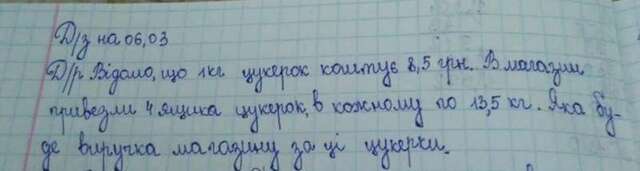 Д/з на 06,03
Д/р Відомо, що 1кг цукерок коштує 8,5 грн. В магазин
привезли 4 ящика цукерок, в кожному по 13,5 кг. Яка бу-
де виручка магазину за ці цукерки.